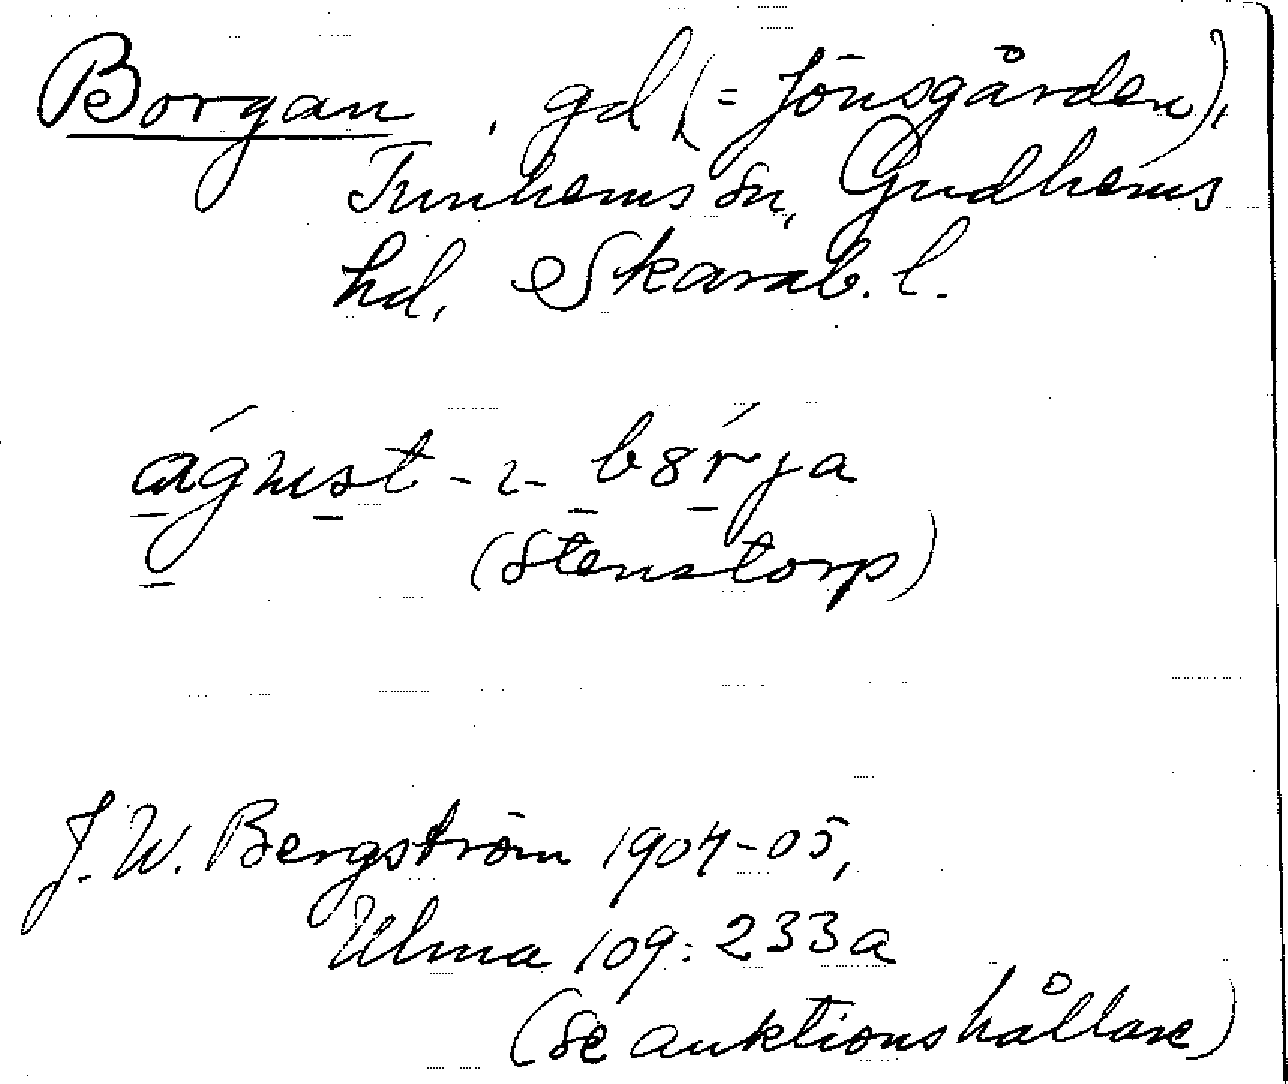 Borgan, gd (= Jönsgården),
Tunhems sn, Gudhems
hd, Skarab. l.
águst - ı - b8́rja
(Stenstorp)
J. W. Bergström 1904-05,
Ulma 109: 233a
(se auktionshållare)